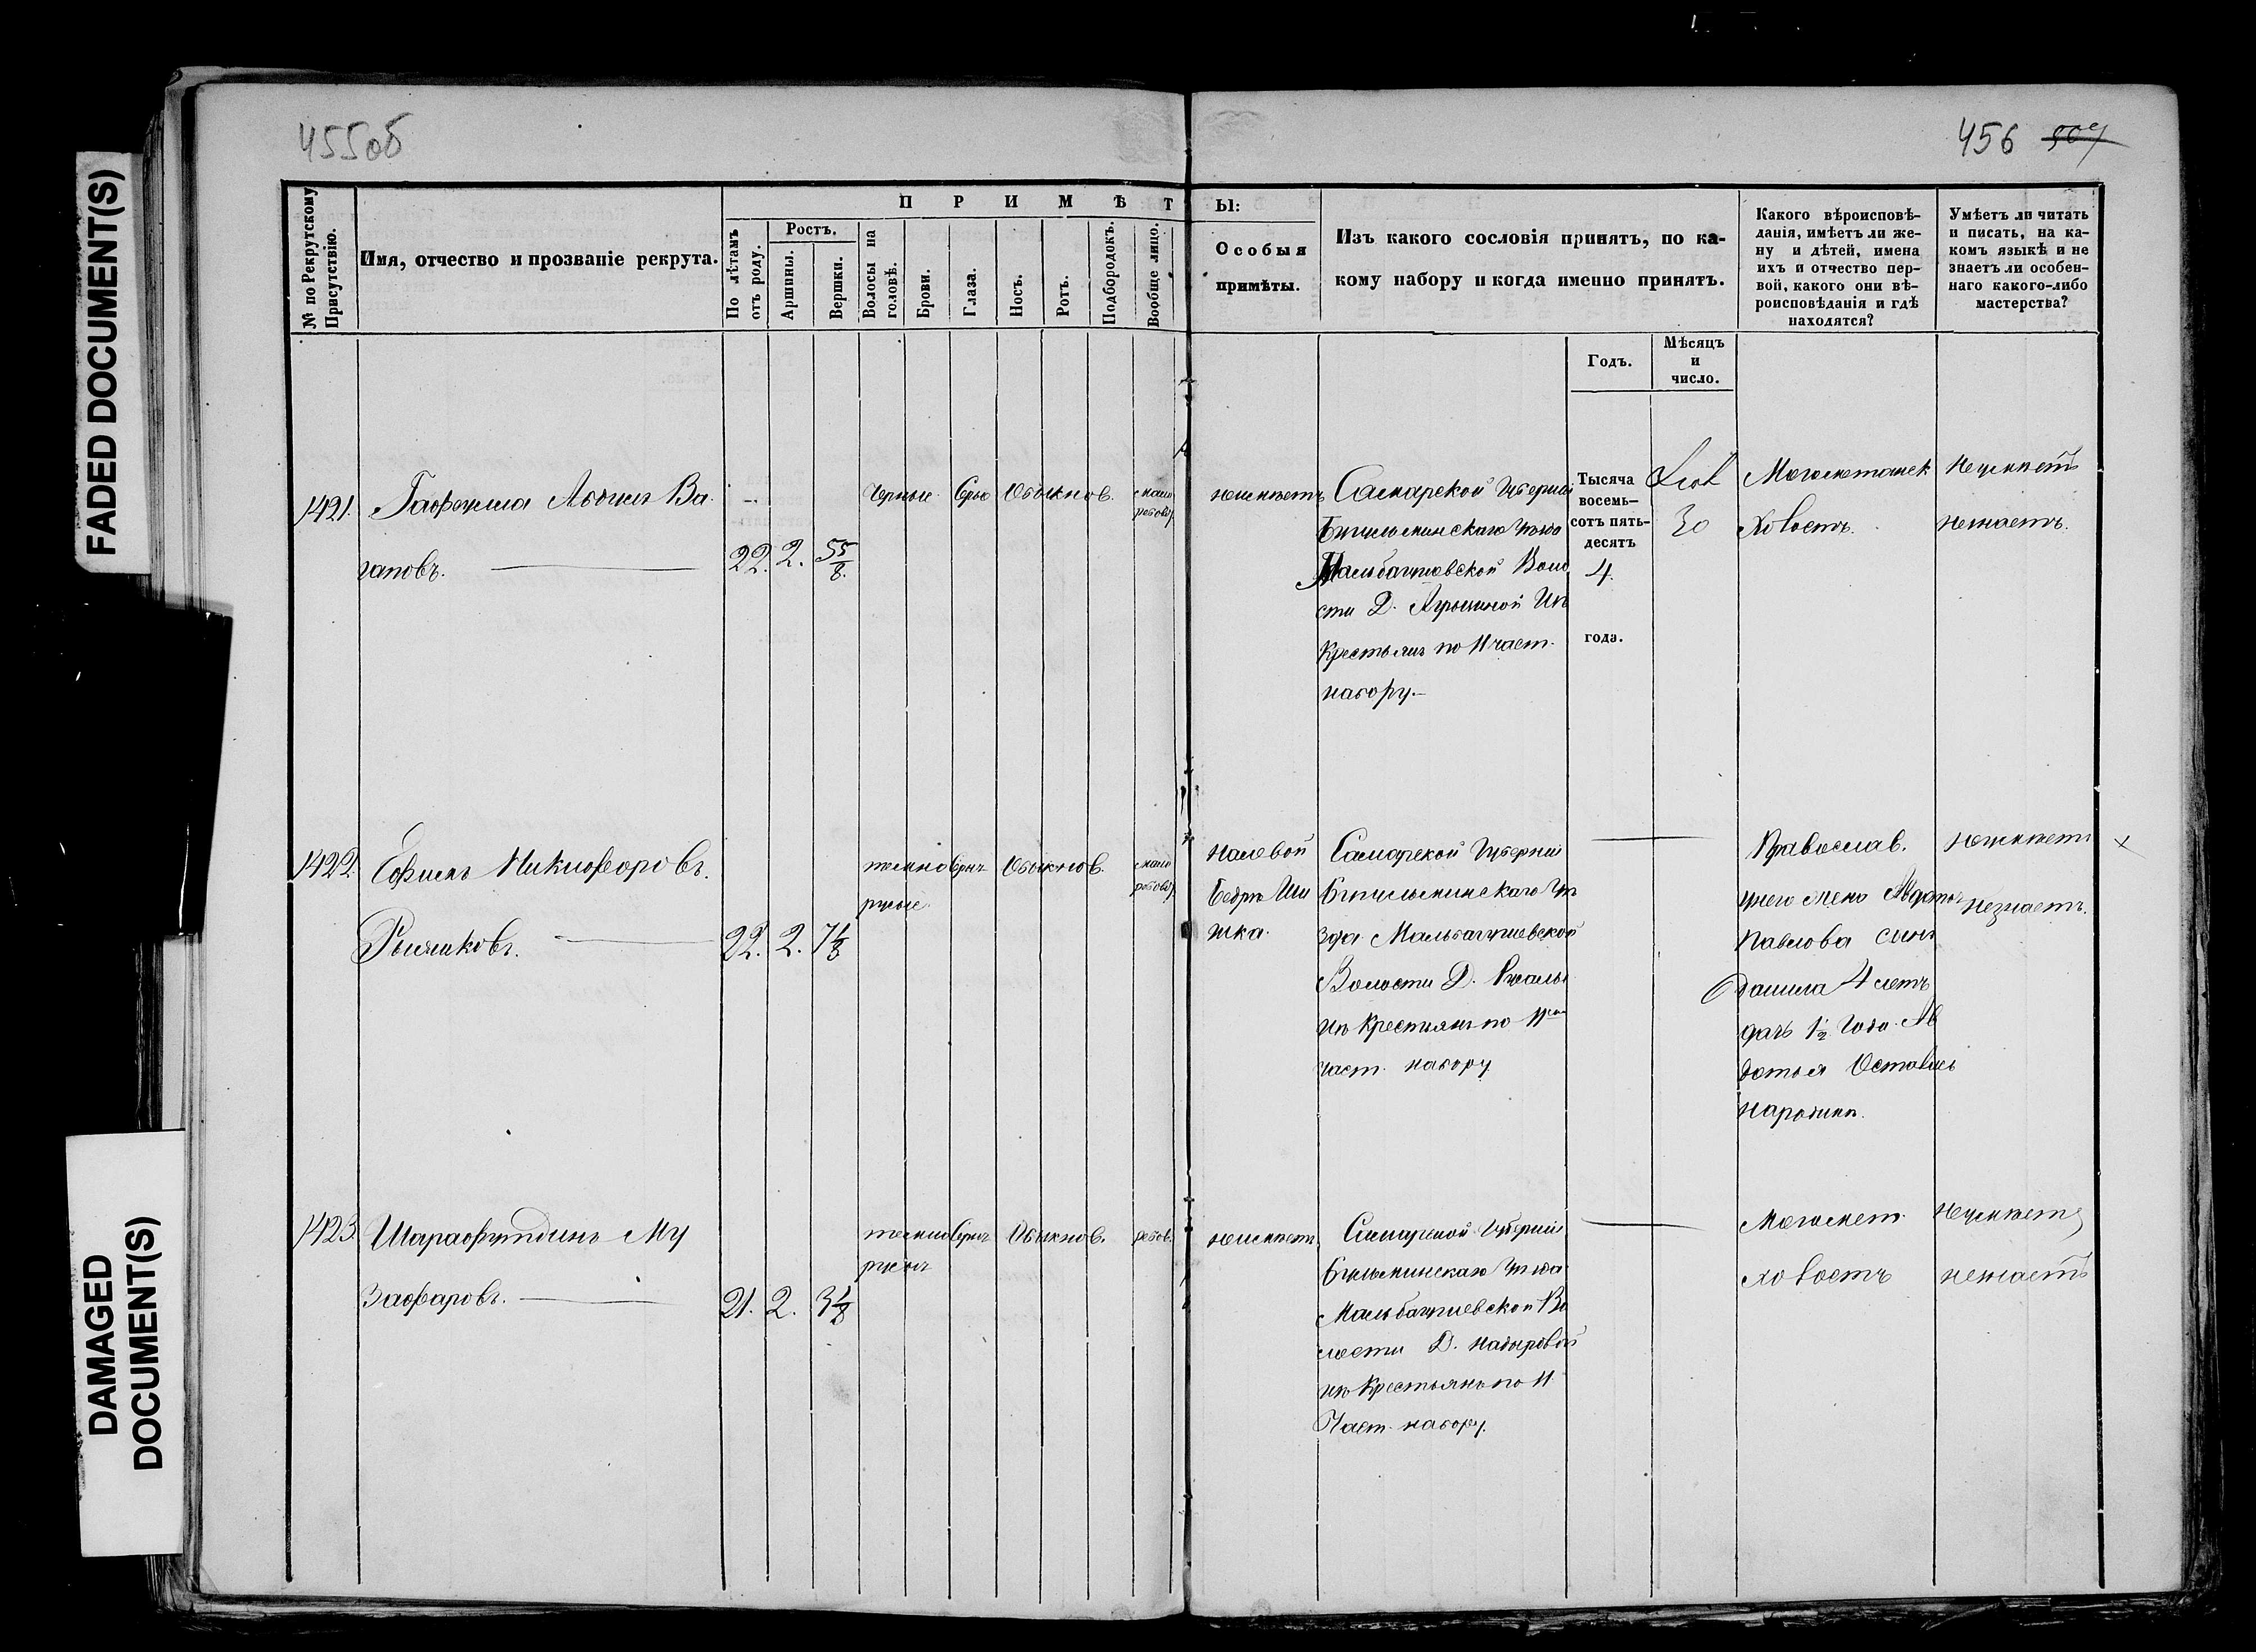 FADED DOCUMENT(S)
DAMAGED
DOCUMENT(S)
455об
456 509
П Р И М Ѣ Т
Ы:
№ по Рекрутскому
Присутствію.
Имя, отчество и прозваніе рекрута.
По лѣтамъ
отъ роду.
Ростъ.
Аршины.
Вершки.
Волосы на
головѣ.
Брови.
Глаза.
Носъ.
Ротъ.
Подбородокъ.
Вообще лицо.
Особыя
примѣты.
Изъ какого сословія принятъ, по ка-
кому набору и когда именно принятъ.
Какого вѣроисповѣ-
данія, имѣетъ ли же-
ну и дѣтей, имена
ихъ и отчество пер-
вой, какого они вѣ-
роисповѣданія и гдѣ
находятся?
Умѣетъ ли читать
и писать, на ка-
комъ языкѣ и не
знаетъ ли особен-
наго какого-либо
мастерства?
Годъ.
Мѣсяцъ
и
число.
1421.
Гафулла Абдул Ва-
гаповъ.
22. 2.
Черные Серы Обыкнов.
неимѣетъ
Самарской Губерніи
Бугульминскаго уѣзда
Мальбагушевской Воло
сти Д.
Крестьянъ по 11 част.
набору.
Тысяча
восемь-
сотъ пять-
десятъ
4.
года.
30
Магометанск
Холостъ.
Неумѣетъ
незнаетъ.
1422.
Ефимъ Никифоровъ.
22. 2. 7 1/8
темно
русые
Серы Обыкнов.
На левой
Бедрѣ Ши
шка.
Самарской Губерніи
Бугульминскаго Уѣ
зда Мальбагушевской
Волости Д.
изъ Крестьянъ по 11
част. набору
Православ.
у него жена
Павлова сынъ
Данила 4 летъ
дочь 1 1/2 года Ав
дотья Остались
на родинѣ.
Неумѣетъ
незнаетъ.
х
1423.
Шарафутдинъ Му
зафаровъ.
21. 2. 3 1/8
темно
русыя
Серы Обыкнов. рябов.
неимѣетъ
Самарской Губерніи
Бугульминскаго Уѣзда
Мальбагушевской Во
лости Д. Надыровой
изъ Крестьянъ по 11
Част. набору.
Магомет.
холостъ
Неумѣетъ
незнаетъ